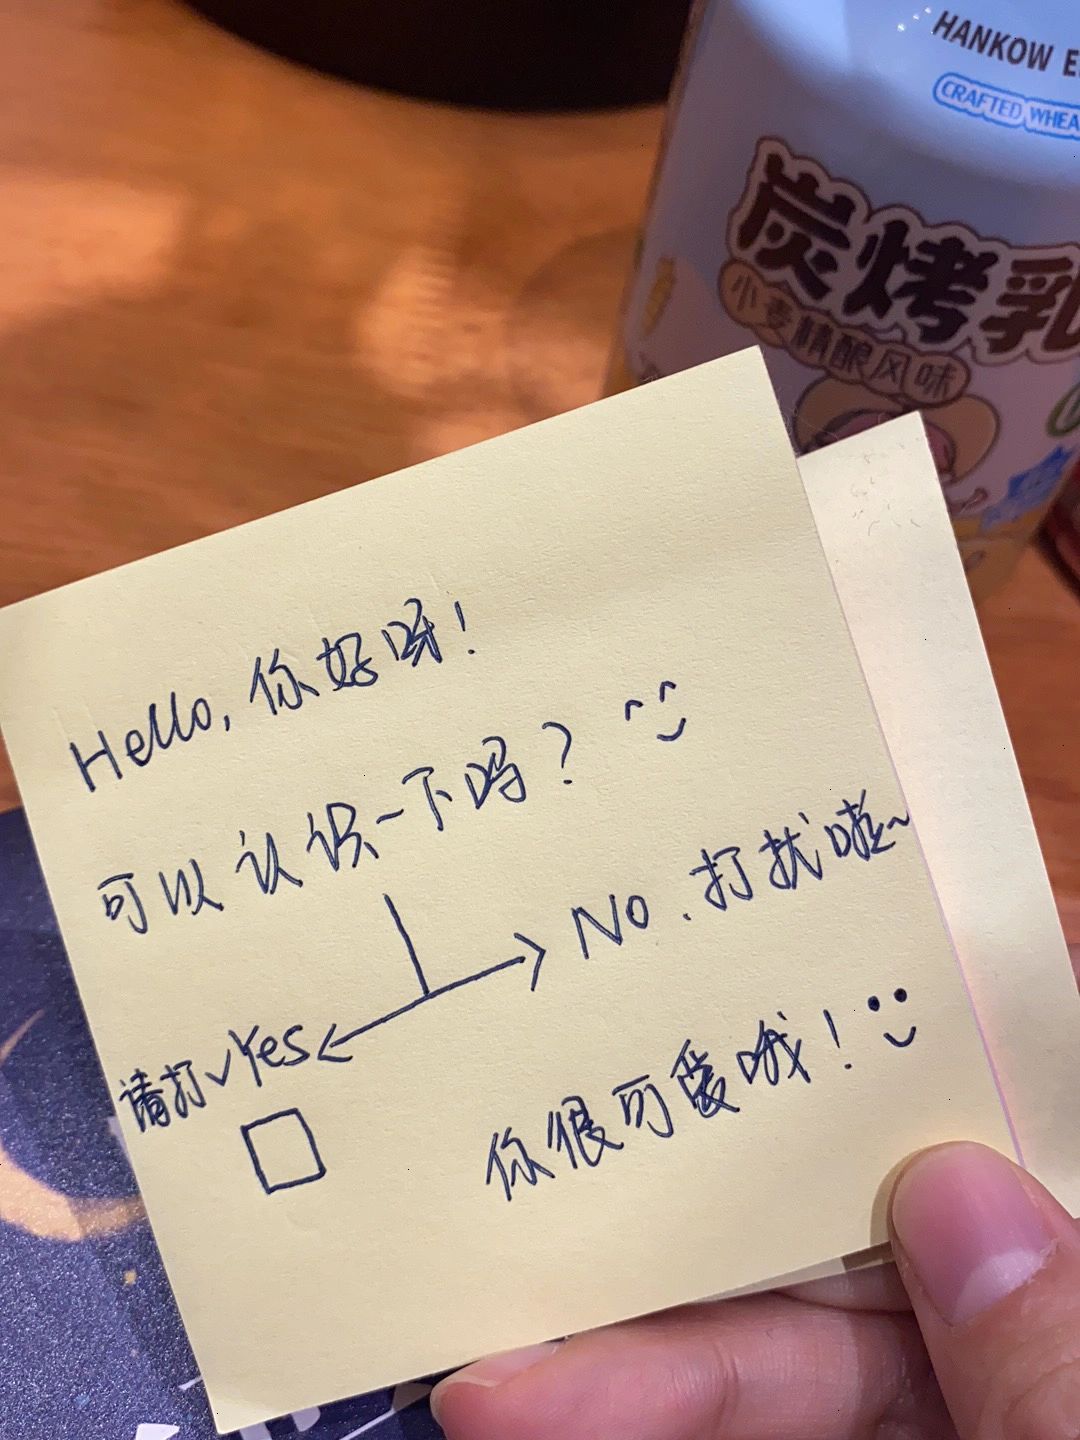 HANKOW E
CRAFTED WHEA
炭烤乳
小麦精酿风味
Hello, 你好呀！
可以认识一下吗？
No. 打扰啦~
请打✓Yes
你很可爱哦！